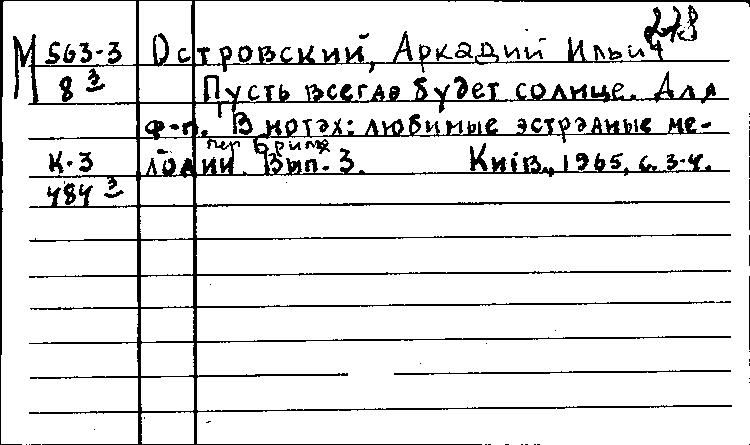 273
М 563-3 Островский, Аркадий Ильич
8 3 Пусть всегда будет солнце. Для
ф-п. В нотах: любимые эстрадные ме-
пер
К-3 лодии. Вып. 3. Київ, 1965, с. 3-4.
484 3